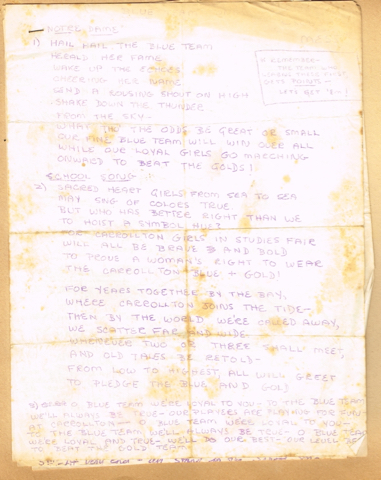 NOTRE DAME:
1) HAIL HAIL THE BLUE TEAM
HERALD HER FAME
WAKE UP THE ECHOES
CHEERING HER NAME
SEND A ROUSING SHOUT ON HIGH
SHAKE DOWN THE THUNDER
FROM THE SKY-
WHAT THO THE ODDS BE GREAT OR SMALL
OUR BLUE TEAM WILL WIN OVER ALL
WHILE OUR LOYAL GIRLS GO MARCHING
ONWARD TO BEAT THE GOLDS!
REMEMBER-
THE TEAM
POINTS-
LETS GET 'EM!
SCHOOL SONG:
2) SACRED HEART GIRLS FROM SEA TO SEA
MAY SING OF COLORS TRUE
BUT WHO HAS BETTER RIGHT THAN WE
TO HOIST A SYMBOL HUE?
FOR CARROLLTON GIRLS IN STUDIES FAIR
WILL ALL BE BRAVE AND BOLD
TO PROVE A WOMAN'S RIGHT TO WEAR
THE CARROLLTON BLUE + GOLD!
FOR YEARS TOGETHER BY THE BAY,
WHERE CARROLLTON JOINS THE TIDE-
THEN BY THE WORLD WE'RE CALLED AWAY,
WE SCATTER FAR AND WIDE
WHEREVER TWO OR THREE SHALL MEET,
AND OLD TALES BE RETOLD-
FROM LOW TO HIGHEST, ALL WILL GREET
TO PLEDGE THE BLUE AND GOLD
3) O BLUE TEAM WE'RE LOYAL TO YOU- TO THE BLUE TEAM
WE'LL ALWAYS BE TRUE- OUR PLAYERS ARE PLAYING FOR
AT CARROLLTON- O BLUE TEAM WE'RE LOYAL TO YOU-
TO THE BLUE TEAM WE'LL ALWAYS BE TRUE- O BLUE TEAM
WE'RE LOYAL AND TRUE- WE'LL DO OUR BEST- OUR LEVEL BEST
TO BEAT THE GOLD TEAM